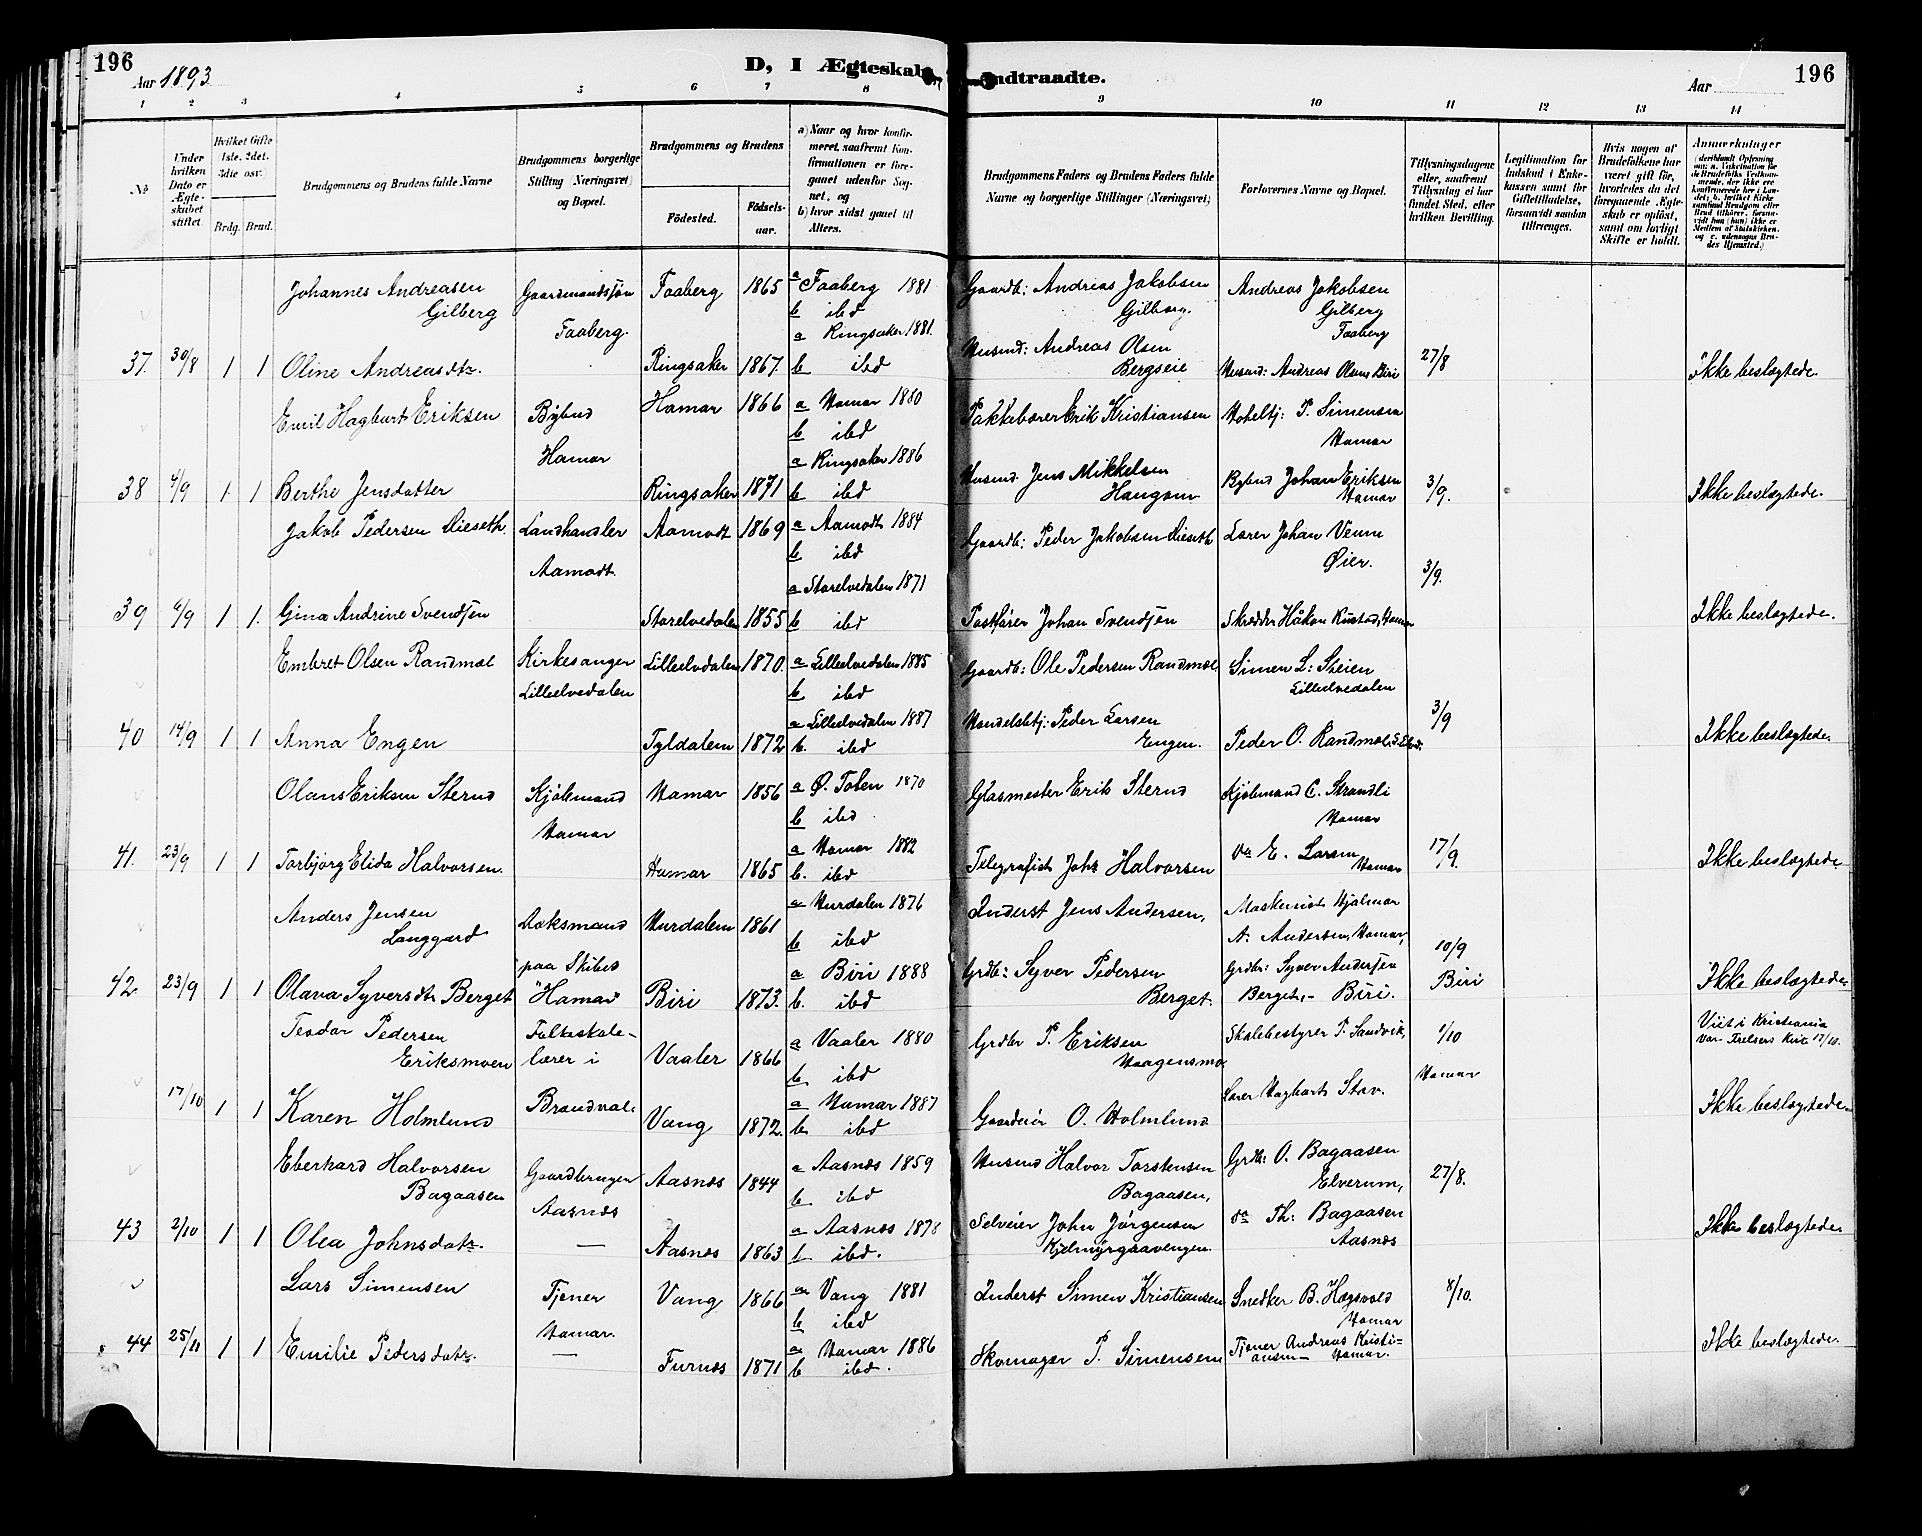 196
Aar 1893.
D, I Ægteskab Indtraadte.
Aar
196
1 2 3 4 5 6 7 8 9 10 11 12 13 14
No
Under hvilken Dato er Ægteskabet stiftet.
Hvilket Gifte 1ste. 2det. 3die osv.
Brdg. Brud.
Brudgommens og Brudens fulde Navne
Brudgommens borgerlige Stilling (Næringsvei) og Bopæl.
Brudgommens og Brudens
Födested.
Födselsaar.
a) Naar og hvor konfirmeret, saafremt Konfirmationen er foregaaet udenfor Sognet, og
b) hvor sidst gaaet til Alters.
Brudgommens Faders og Brudens Faders fulde Navne og borgerlige Stillinger (Næringsvei)
Forlovernes Navne og Bopæl.
Tillysningsdagene eller, saafremt Tillysning ei har fundet Sted, efter hvilken Bevilling.
Legitimation for Indskud i Enkekassen samt for Giftetilladelse, forsaavidt saadan tiltrænges.
Hvis nogen af Brudefolkene har været gift før, hvorledes da det foregaaende Ægteskab er opløst, samt om lovligt Skifte er holdt.
Anmærkninger
Johannes Andreasen Gilberg Gaardmandssøn Faaberg. Faaberg 1865 a Faaberg 1881 b ibd Gaardb: Andreas Jakobsen Gilberg. Andreas Jakobsen Gilberg Faaberg
37. 30/8 1 1 Oline Andreasdtr. Ringsaker 1867. a Ringsaker 1881. b ibd Husmd: Andreas Olsen Bergseie Husmd: Andreas Olsen Biri 27/8 Ikke beslægtede.
Emil Hagbart Eriksen Bybud Hamar Hamar 1866 a Hamar 1880 b ibd Pakkebærer Erik Kristiansen Hotelbj: P. Simensen Hamar
38 4/9 1 1 Berthe Jensdatter Ringsaker 1871 a Ringsaker 1886 b ibd Husmd Jens Mikkelsen Bybud Johan Eriksen Hamar 3/9. Ikke beslægtede.
Jakob Pedersen Dieseth. Landhandler Aamodt. Aamodt 1869 a Aamodt 1884 b ibd Gaardb: Peder Jakobsen Dieseth Lærer Johan Venne Øier.
39 6/9 1 1. Gina Andrine Svendsen Storelvedalen 1855 a Storelvedalen 1871 b ibd Postfører Johan Svendsen Skredder Håkon Rustad, Hamar 3/9. Ikke beslægtede.
Embret Olsen Randmæl Kirkesanger Lilleelvedalen Lilleelvdalen 1870. a Lilleelvedalen 1885 b ibd Gaardb: Ole Pedersen Randmæl Simen L: Steien Lilleelvedalen
40 14/9 1 1 Anna Engen Tyldalen 1872 a Lilleelvedalen 1887 b. ibd Handelsbtj: Peder Larsen Engen. Peder O. Randmæl, 3/9 Ikke beslægtede.
Olaus Eriksen Sterud Kjølemand Hamar Hamar 1856 a Ø. Toten 1870 b ibd. Glasmester Erik Sterud Kjølemand C. Strandli Hamar
41. 23/9 1 1 Torbjørg Elida Halvorsen. Hamar 1865 a Hamar 1882 b. ibd Telegrafist Johs Halvorsen do E. Larsen Hamar 17/9. Ikke beslægtede.
Anders Jensen Langgard Dæksmand paa Skibes Hamar Hurdalen 1861 a Hurdalen 1876 b ibd Inderst Jens Andersen, Maskinist Hjalmar A. Andersen, Hamar,
42. 23/9 1 1 Olava Syversdtr Berget Biri 1873. a Biri 1888 b. ibd Grdb: Syver Pedersen Berget. Grdbr: Syver Andersen Berget,- Biri. 10/9 Biri Ikke beslægtede.
Teodor Pedersen Eriksmoen Folkeskolelærer i Brandval. Vaaler 1866 a Vaaler 1880 b. ibd Grdbr P. Eriksen Haagensmo Skolebestyrer P. Sandvik, 1/10 Hamar Viet i Kristiania Vor Frelsers Kirk 17/10.
17/10 1 1 Karen Holmlund Vang 1872. a Hamar 1887 b. ibd Gaardeier O. Holmlund Lærer Hagbart Stav. Ikke beslægtede.
Eberhard Halvorsen Bagaasen Gaardbruger Aasnæs Aasnæs 1844 a Aasnæs 1859 b ibd Husmd Halvor Torstensen Bagaasen, Grdb: O. Bagaasen Elverum, 27/8.
43 2/10 1 1 Olea Johnsdatr. — Aasnæs 1863 a Aasnæs 1878 b ibd. Selveier John Jørgensen Kjelmyrgraavengen. do Th: Bagaasen Aasnæs Ikke beslægtede.
Lars Simensen Tjener Hamar. Vang 1866 a Vang 1881 b ibd Inderst Simen Kristiansen Snedker B. Hagsveld Hamar 8/10.
44 25/11 1 1 Emilie Pedersdatr. — Furnæs 1871 a Hamar 1886 b ibd. Skomager P. Simensen Tjener Andreas Kristiansen Hamar. Ikke beslægtede.